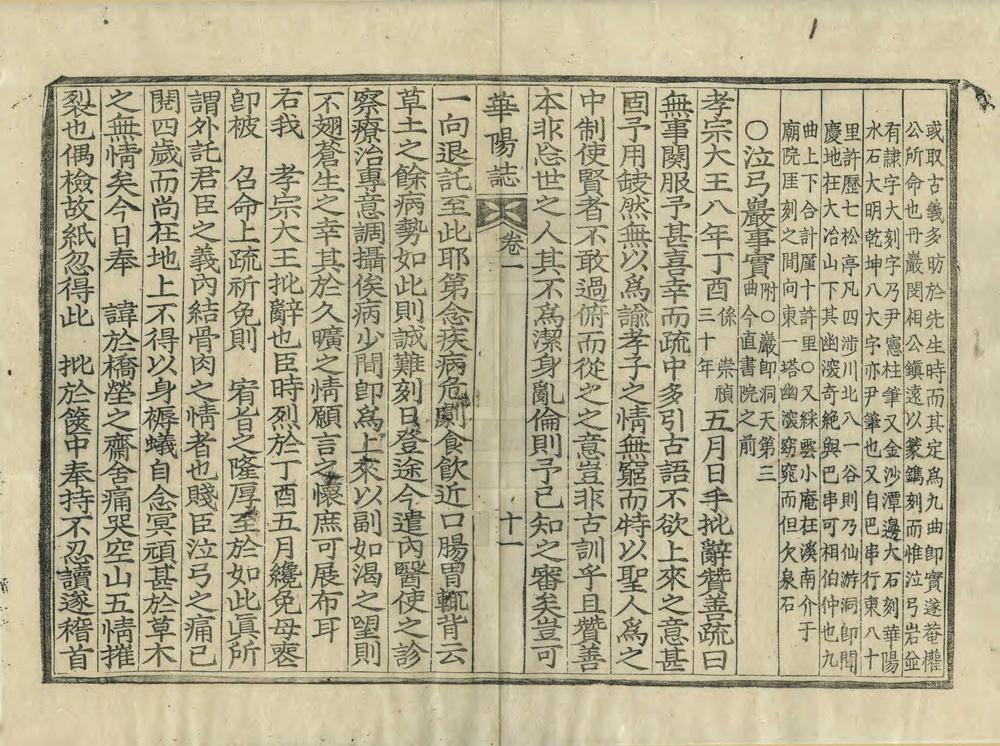 或取古義多昉於先生時而其定爲九曲卽實遂菴權
公所命也丹巖閔相公鎭遠以篆鐫刻而惟泣弓岩並
有隷字大刻字乃尹憲柱筆又金沙潭邊大石刻華陽
水石大明乾坤八大字亦尹筆也又自巴串行東八十
里許歷七松亭凡四涉川北八一谷則乃仙游洞卽聞
慶地在大冶山下其幽深奇絶與巴串可相伯仲也九
曲上下合計廑十許里○又綵雲小庵在溪南介于
廟院厓刻之間向東一塔幽深窈窕而但欠泉石
○泣弓巖事實附○巖卽洞天第三
曲今直書院之前
孝宗大王八年丁酉係 崇禎
三十年 五月日手批辭贊善疏曰
無事関服予甚喜幸而疏中多引古語不欲上來之意甚
固予用缺然無以爲諭孝子之情無窮而特以聖人爲之
中制使賢者不敢過俯而從之之意豈非古訓乎且贊善
本非忘世之人其不爲潔身亂倫則予已知之審矣豈可
華陽誌 卷一 十一
一向退託至此耶第念疾病危劇食飮近口腸胃輒背云
草土之餘病勢如此則誠難刻日登途今遣內醫使之診
察療治專意調攝俟病少間卽爲上來以副如渴之望則
不翅蒼生之幸其於久曠之情願言之懷庶可展布耳
右我 孝宗大王批辭也臣時烈於丁酉五月纔免母喪
卽被 召命上疏祈免則 宥旨之隆厚至於如此眞所
謂外託君臣之義內結骨肉之情者也賤臣泣弓之痛已
閱四歲而尙在地上不得以身褥蟻自念冥頑甚於草木
之無情矣今日奉 諱於橋塋之齋舍痛哭空山五情摧
裂也偶檢故紙忽得此 批於篋中奉持不忍讀遂稽首